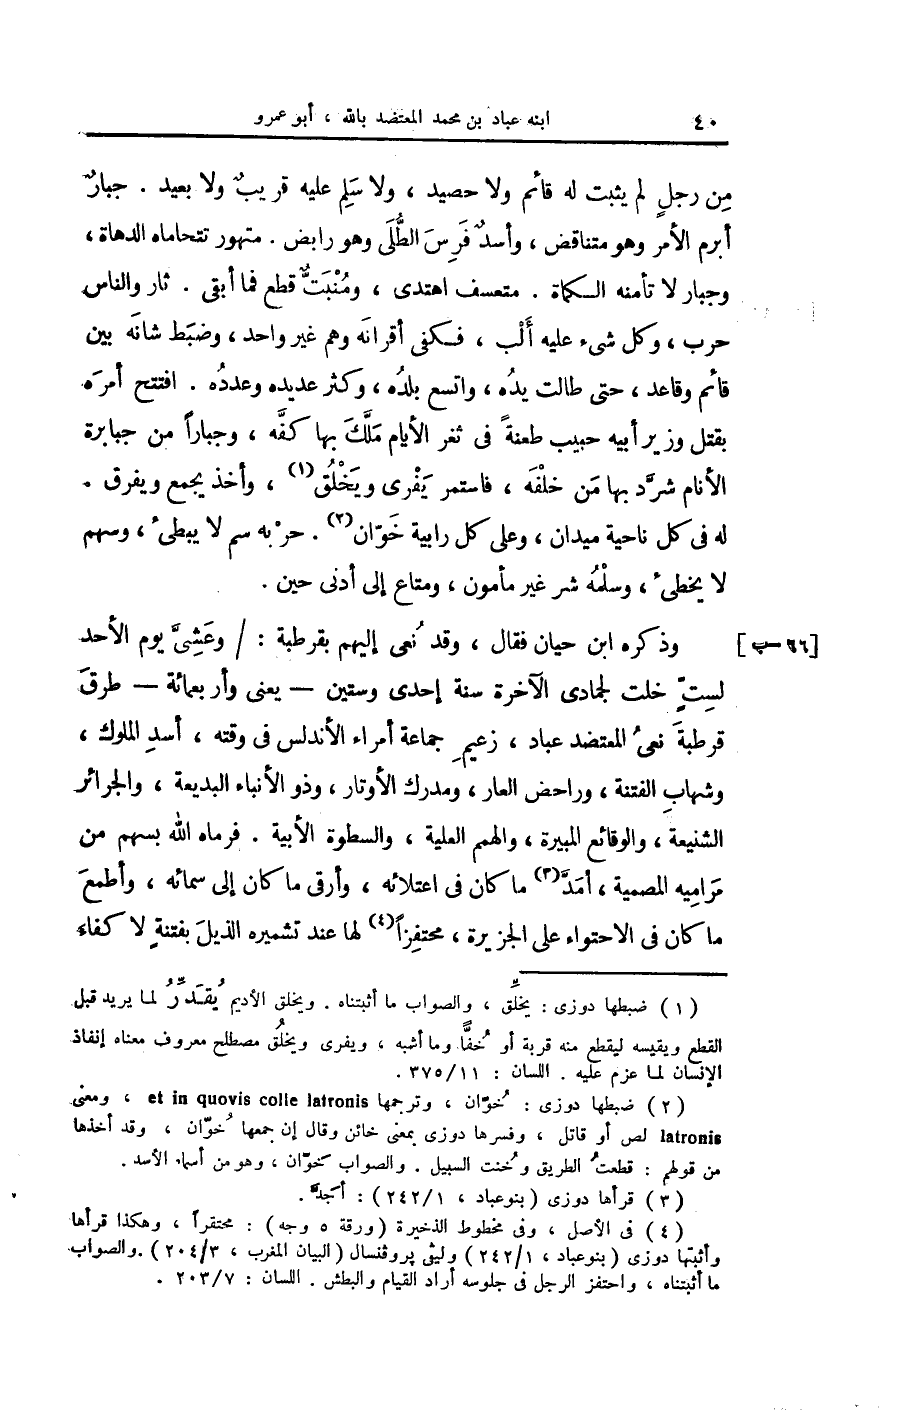 ٤٠ ابنه عباد بن محمد المعتضد بالله ، أبو عمرو
مِن رجلٍ لم يثبت له قائم ولا حصيد ، ولا سَلِم عليه قريبٌ ولا بعيد . جبارٌ
أبرم الأمر وهو متناقض ، وأسدٌ فَرِسَ الطُّلَى وهو رابض . متهور تتحاماه الدهاة ،
وجبار لا تأمنه الكماة . متعسف اهتدى ، ومُنْبَتٌّ قطع فما أبقى . ثار والناس
حرب ، وكل شىء عليه أَلْب ، فكفى أقرانَه وهم غير واحد ، وضبَط شانَه بين
قائم وقاعد ، حتى طالت يدُه ، واتسع بلدُه ، وكثر عديده وعددُه . افتتح أمرَه
بقتل وزير أبيه حبيب طعنةً فى ثغر الأيام مَلَّكَ بها كفَّه ، وجباراً من جبابرة
الأنام شرَّد بها مَن خلفَه ، فاستمر يَفْرى ويَخْلُق(١) ، وأخذ يجمع ويفرق .
له فى كل ناحية ميدان ، وعلى كل رابية خَوّان(٢) . حرْبه سم لا يبطىء ، وسهم
لا يخطىء ، وسلْمُه شر غير مأمون ، ومتاع إلى أدنى حين .
وذكره ابن حيان فقال ، وقد نُعى إليهم بقرطبة : / وعَشِىَّ يوم الأحد [٦٦-ب]
لستٍّ خلت لجمادى الآخرة سنة إحدى وستين — يعنى وأربعمائة — طرقَ
قرطبةَ نعىُ المعتضد عباد ، زعيمِ جماعة أمراء الأندلس فى وقته ، أسدِ الملوك ،
وشهابِ الفتنة ، وراحض العار ، ومدرك الأوتار ، وذو الأنباء البديعة ، والجرائر
الشنيعة ، والوقائع المبيرة ، والهمم العلية ، والسطوة الأبية . فرماه الله بسهم من
مَراميه المصمية ، أمَدَّ(٣) ما كان فى اعتلائه ، وأرقى ما كان إلى سمائه ، وأطمعَ
ما كان فى الاحتواء على الجزيرة ، محتفِزاً(٤) لها عند تشميره الذيلَ بفتنةٍ لا كفاء
(١) ضبطها دوزى : يخلِّق ، والصواب ما أثبتناه . ويخلق الأديم يُقَدِّرُ لما يريد قبل
القطع ويقيسه ليقطع منه قربة أو خُفًّا وما أشبه ، ويفرى ويخلُق مصطلح معروف معناه إنفاذ
الإنسان لما عزم عليه . اللسان : ٣٧٥/١١ .
(٢) ضبطها دوزى : خُوّان ، وترجمها et in quovis colle latronis ، ومعنى
latronis لص أو قاتل ، وفسرها دوزى بمعنى خائن وقال إن جمعها خُوّان ، وقد أخذها
من قولهم : قطعتُ الطريق وخُنت السبيل . والصواب خَوّان ، وهو من أسماء الأسد .
(٣) قرأها دوزى (بنوعباد ، ٢٤٢/١) : أجدَّ .
(٤) فى الأصل ، وفى مخطوط الذخيرة (ورقة ٥ وجه) : محتقراً ، وهكذا قرأها
وأثبتها دوزى (بنوعباد ، ٢٤٢/١) وليثى پروڤنسال (البيان المغرب ، ٢٠٤/٣) . والصواب
ما أثبتناه ، واحتفز الرجل فى جلوسه أراد القيام والبطش . اللسان : ٢٠٣/٧ .